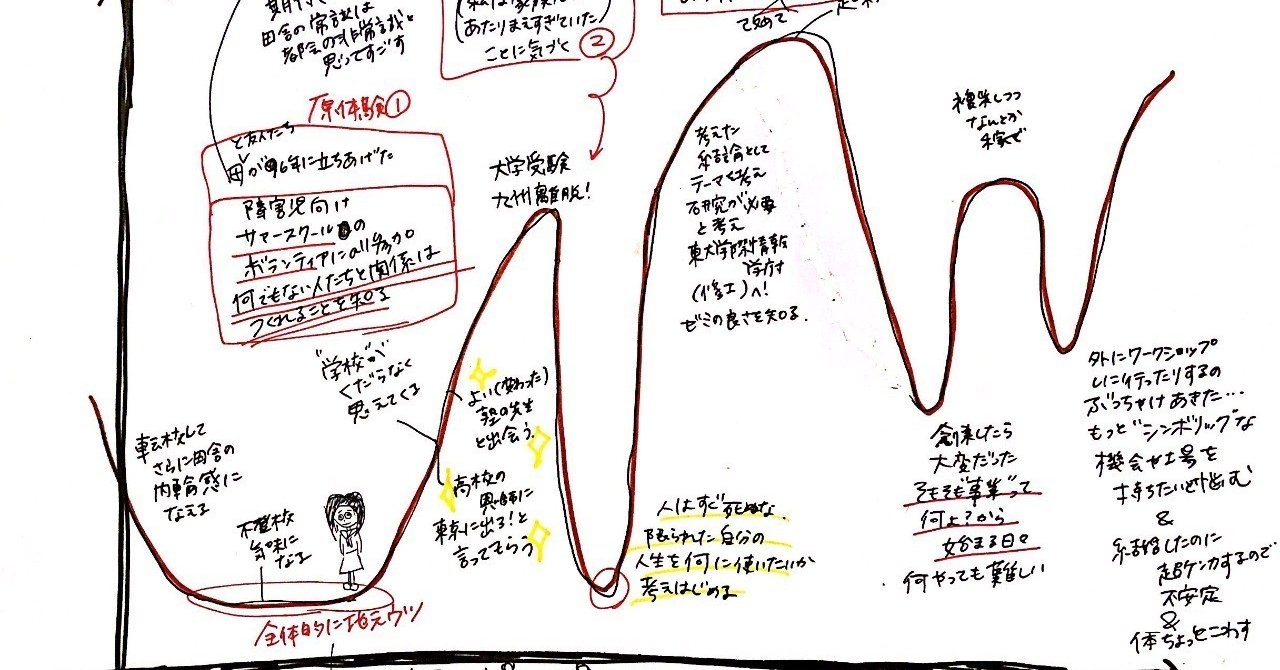 田舎の常識は
都会の非常識と
思ってすごす
あたりまえすぎていた
ことに気づく ②
て始めて
原体験①
と友人たち
母が96年に立ちあげた
障害児向け
サマースクールの
ボランティアに参加。
何でもない人たちと関係は
つくれることを知る
大学受験
九州離脱!
"学校"が
くだらなく
思えてくる
よい(変わった)
塾の先生
と出会う。
高校の
恩師に
東京に出ろ!と
言ってもらう
転校して
さらに田舎の
内輪感に
なえる
不登校
気味に
なる
全体的に地元ウツ
考えた
結論として
テーマを考え
研究が必要
と考え
東大学際情報
学府
(修士)へ!
ゼミの良さを知る.
人はすぐ死ぬな.
限られた自分の
人生を何に使いたいか
考えはじめる
模索しつつ
なんとか
稼ぐ
創業したら
大変だった
そもそも"事業"って
何よ?から
始まる日々
何やっても難しい
外にワークショップ
しに行ったりするの
ぶっちゃけあきた…
もっと"シンボリック"な
機会や
持ちたいと悩む
&
結婚したのに
超ケンカするので
不安定
&
体ちょっとこわす